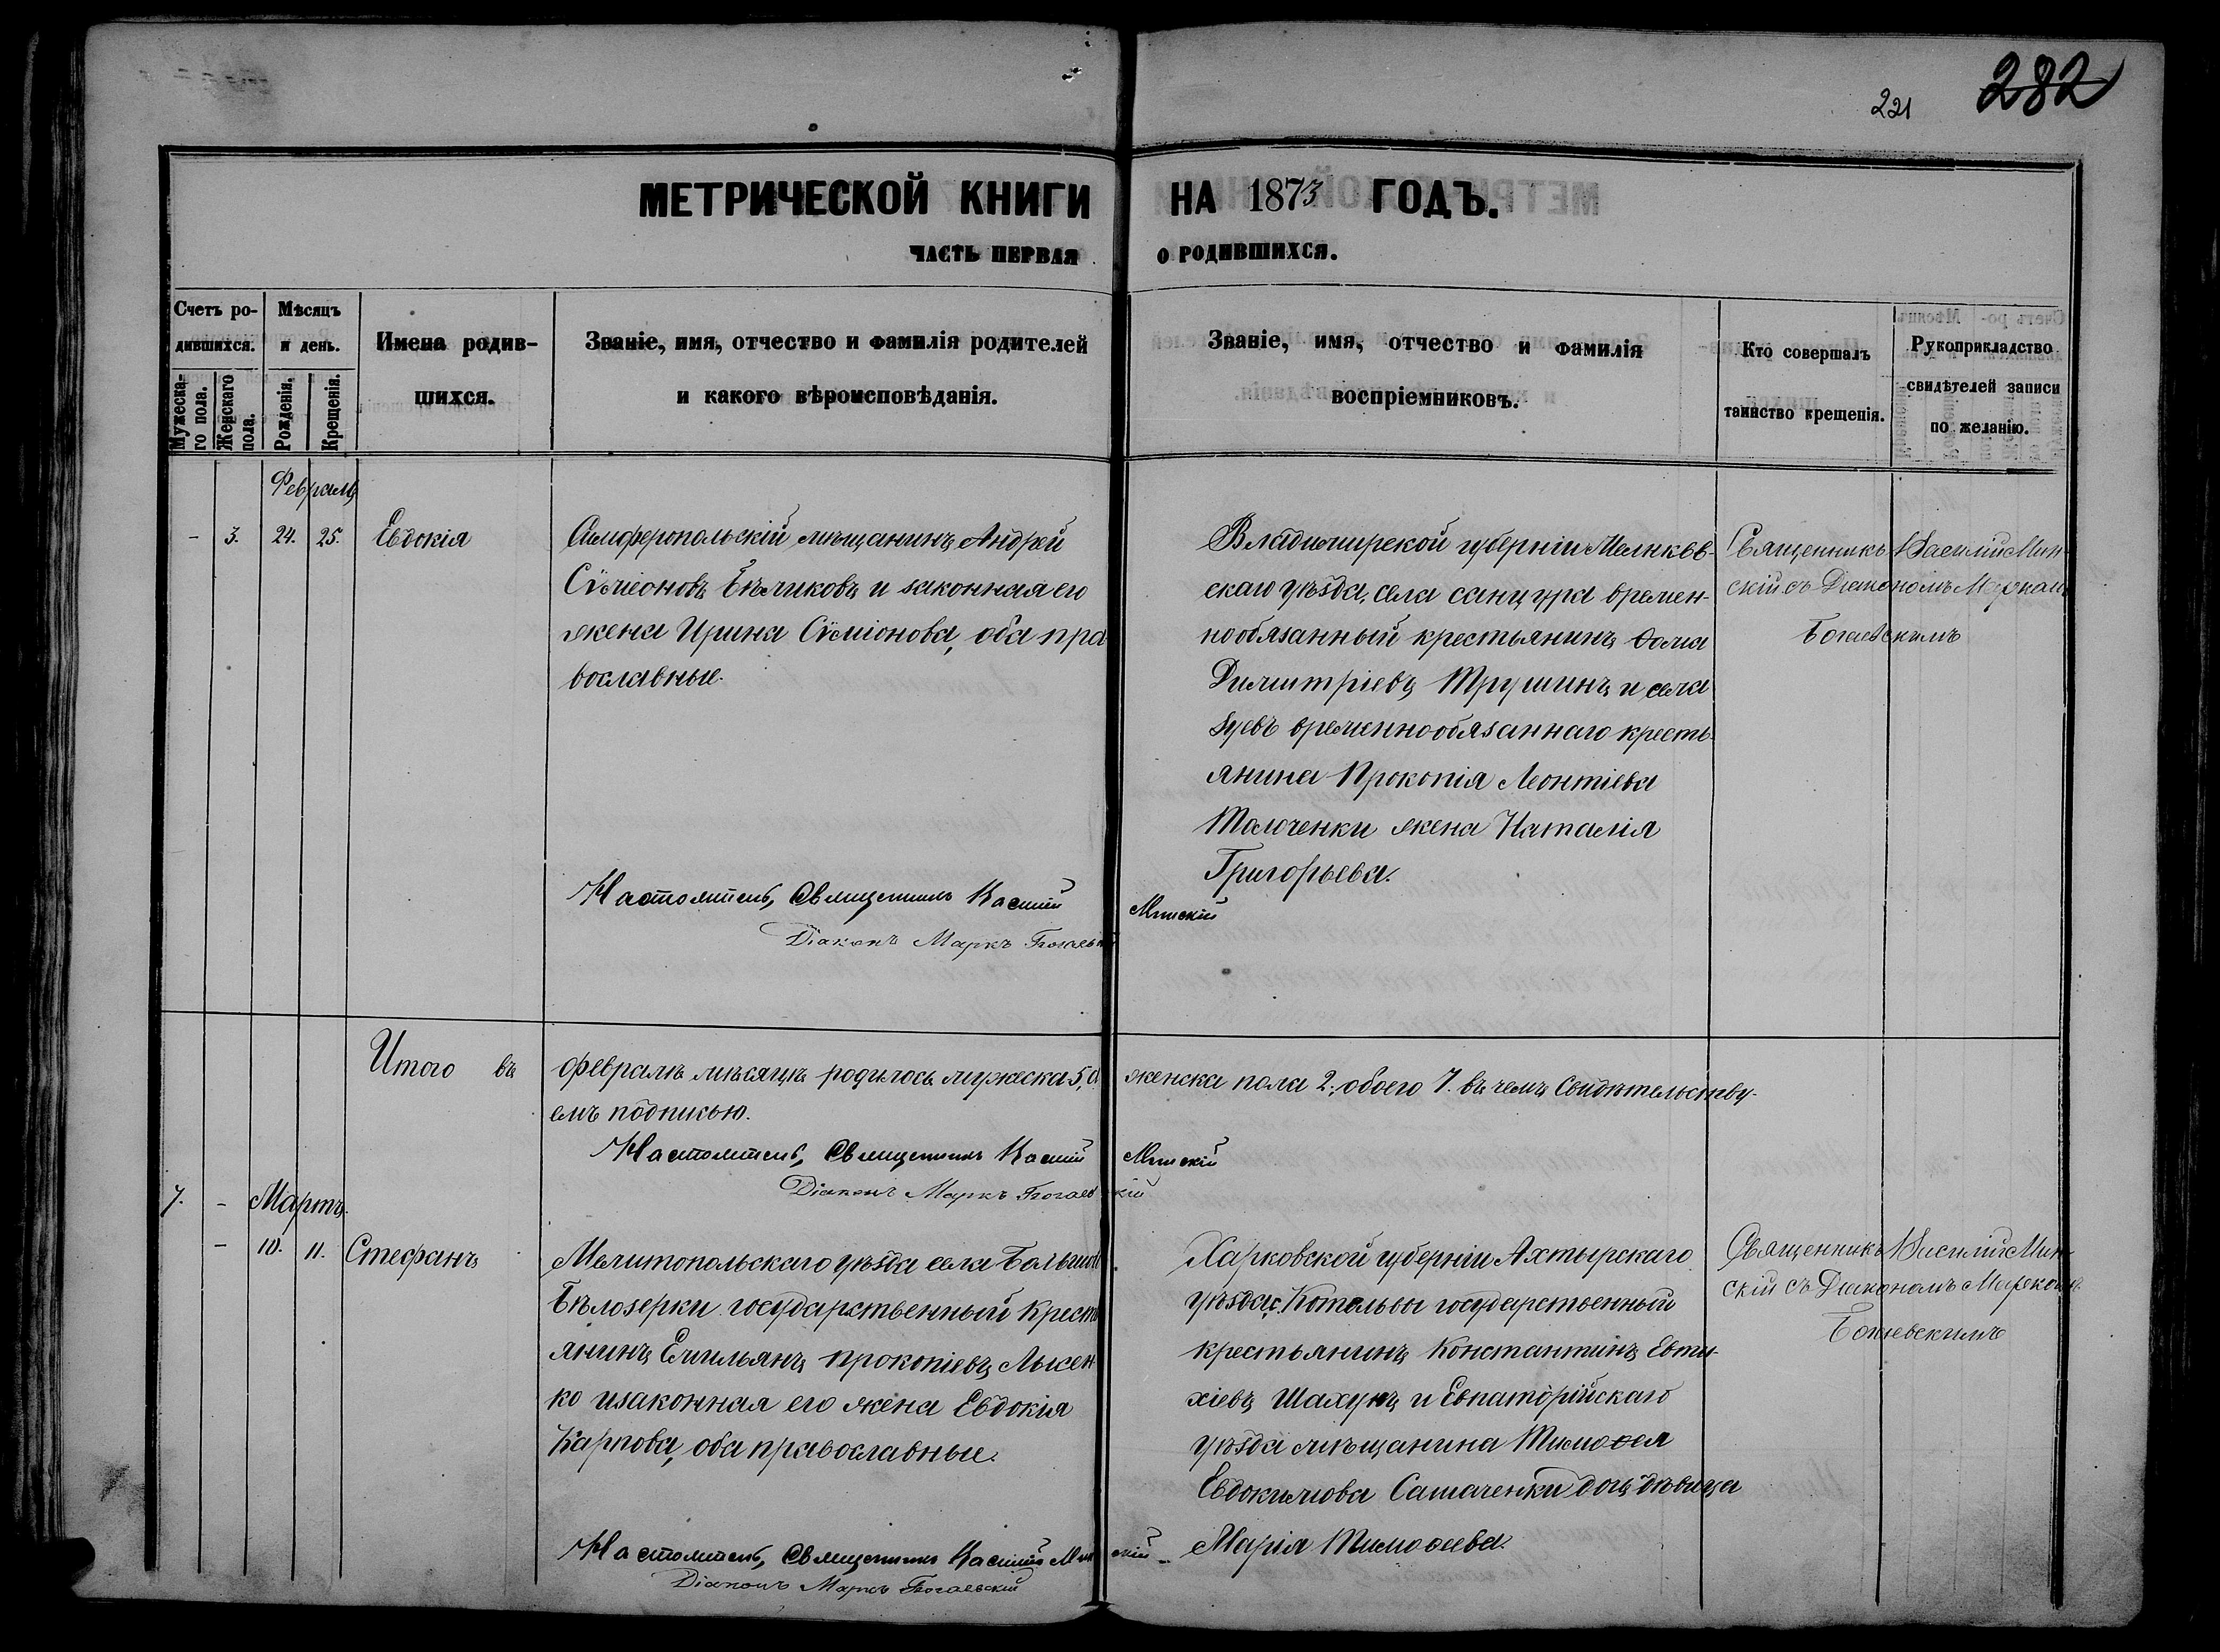 221 282
МЕТРИЧЕСКОЙ КНИГИ НА 1873 ГОДЪ.
ЧАСТЬ ПЕРВАЯ О РОДИВШИХСЯ.
Счетъ ро-
дившихся.
Мужеска-
го пола.
Женскаго
пола.
Мѣсяцъ
и день.
Рожденія.
Крещенія.
Имена родив-
шихся.
Званіе, имя, отчество и фамилія родителей
и какого вѣроисповѣданія.
Званіе, имя, отчество и фамилія
воспріемниковъ.
Кто совершалъ
таинство крещенія.
Рукоприкладство
свидѣтелей записи
по желанію.
Февраль
- 3. 24. 25. Евдокія
Симферопольскій мѣщанинъ Андрей
Сѵмеоновъ Бѣликовъ и законная его
жена Ирина Сѵміонова, оба пра
вославные.
Владимирской губерніи Меленков-
скаго уѣзда, села санцура времен-
нообязанный крестьянинъ Ѳома
Димитріевъ Трушинъ и села
Зуевъ временнообязаннаго кресть-
янина Прокопія Леонтіева
Толоченки жена Наталія
Григорьева.
Священникъ Василій Мин-
скій съ Діакономъ Маркомъ
Богаевскимъ
Настоятель, Священникъ Василій Минскій
Діаконъ Маркъ Богаевскій
Итого въ февралѣ мѣсяцѣ родилось мужеска 5, а женска пола 2; обоего 7. въ чемъ свидѣтельству-
емъ подписью.
Настоятель, Священникъ Василій Минскій
Діаконъ Маркъ Богаевскій
7. - Мартъ.
- 10. 11. Стефанъ
Мелитопольскаго уѣзда села Большой
Бѣлозерки государственный крестъ
янинъ Емильянъ Прокопіевъ Лысен
ко изаконная его жена Евдокія
Карпова, оба православные.
Харковской губерніи Ахтырскаго
уѣзда с. Котельвы государственный
крестьянинъ Константинъ Евти-
хіевъ Шахунъ и Евпаторійскаго
уѣзда мѣщанина Тимоѳея
Евдокимова Сашаченки дочь дѣвица
Марія Тимоѳеева.
Священникъ Василій Мин-
скій съ Діакономъ Маркомъ
Богаевскимъ
Настоятель, Священникъ Василій Минскій
Діаконъ Маркъ Богаевскій